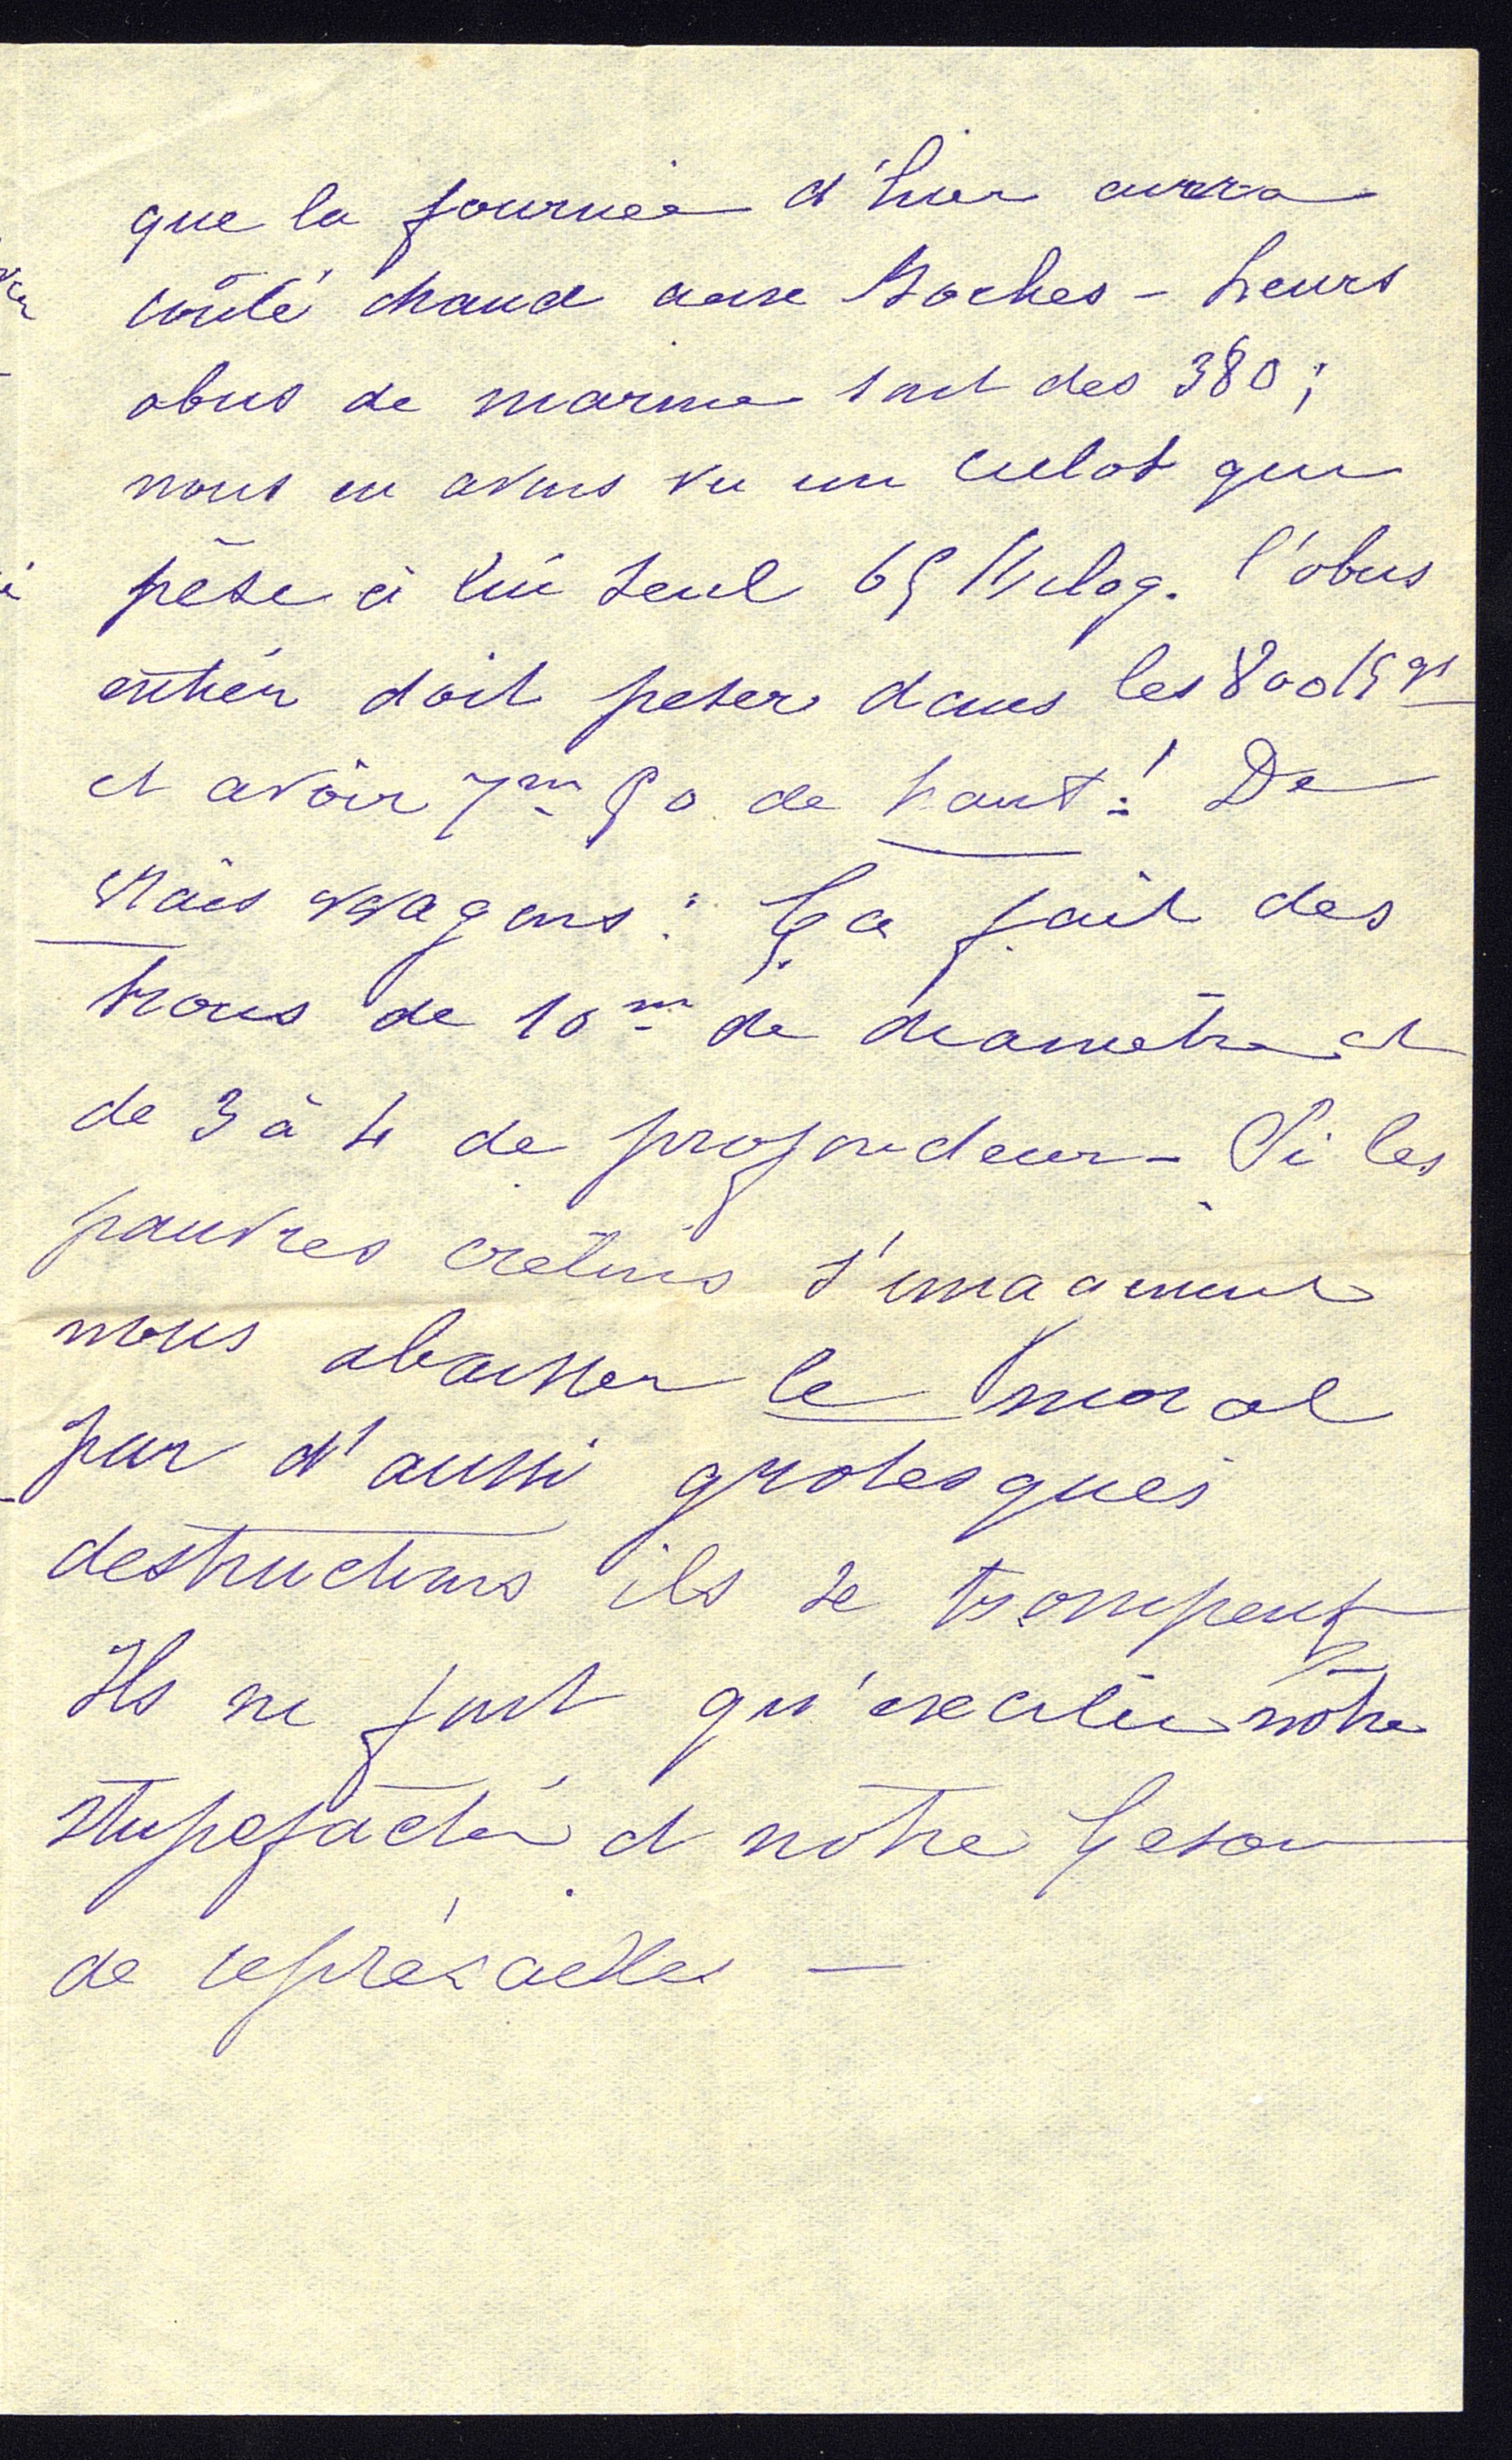 que la journée d'hier aura
coûté chaud aux Boches - Leurs
obus de marine sont des 380 ;
nous en avons vu un culot qui
pèse à lui seul 65 Kilog. l'obus
entier doit peser dans les 800 Kgs
et avoir 1m 50 de haut ! De
vrais wagons : Ça fait des
trous de 10m de diamètre et
de 3 à 4 de profondeur - Si les
pauvres crétins s'imaginent
nous abaisser le moral
par d'aussi grotesques
destructions ils se trompent
Ils ne font qu'exciter notre
et notre
de représailles -